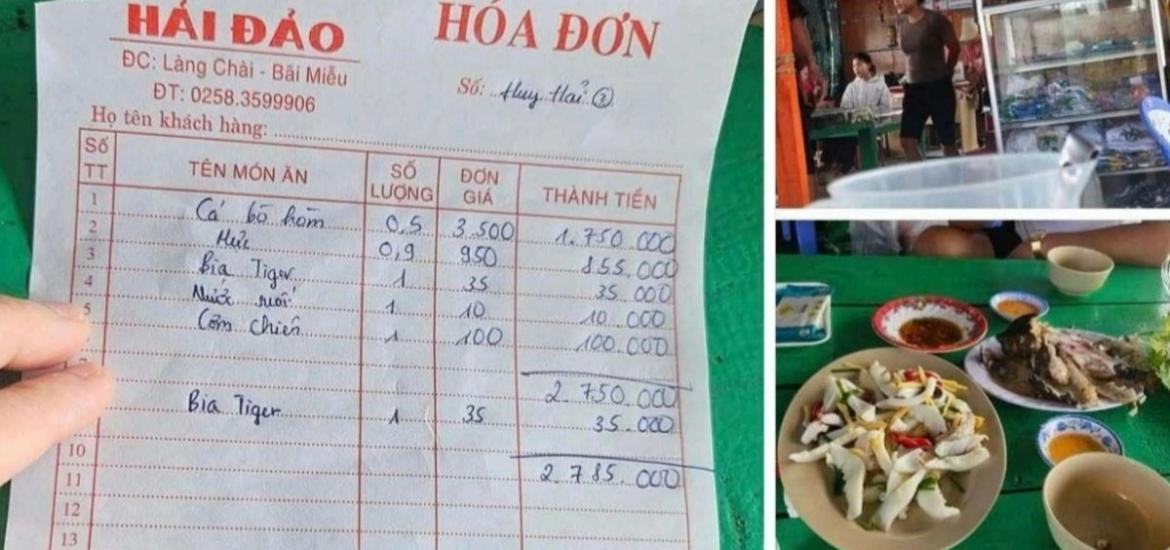 HẢI ĐẢO
ĐC: Làng Chài - Bãi Miễu
ĐT: 0258.3599906
HÓA ĐƠN
Số: Huy Hải ②
Họ tên khách hàng:
Số TT TÊN MÓN ĂN SỐ LƯỢNG ĐƠN GIÁ THÀNH TIỀN
1 Cá bò hòm 0,5 3.500 1.750.000
2 Mực 0,9 950 855.000
3 Bia Tiger 1 35 35.000
4 Nước suối 1 10 10.000
5 Cơm chiên 1 100 100.000
2.750.000
Bia Tiger 1 35 35.000
10 2.785.000
11
12
13